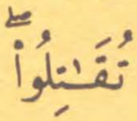 تُقَـٰتِلُوا۟ۖ